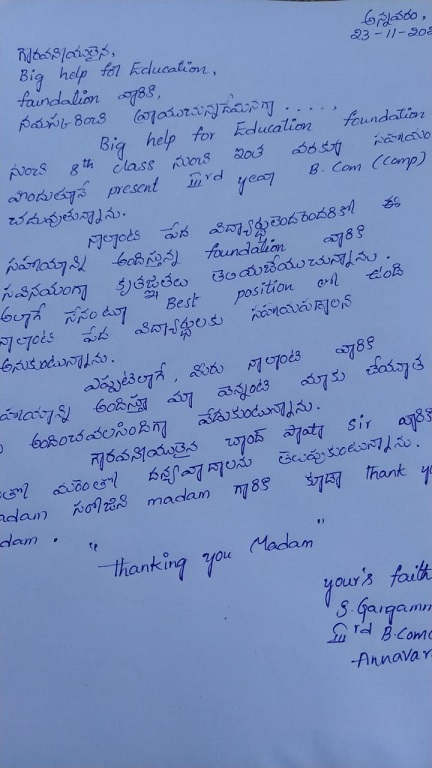 అన్నవరం,
23-11-202
గౌరవనీయులైన,
Big help for Education,
foundation వారికి,
నమస్కరించి వ్రాయుచున్నదేమనగా . . . . . ,
Big help for Education foundation
నుంచి 8th class నుంచి ఇంత వరకూ సహాయం
పొందుతూనే present IIIrd year B.Com (Comp)
చదువుతున్నాను.
నాలాంటి పేద విద్యార్థులెందరెందరికో ఈ
సహాయాన్ని అందిస్తున్న foundation వారికి
సవినయంగా కృతజ్ఞతలు తెలియజేయుచున్నాను.
అలాగే నేనుంటూ Best position లో ఉండి
నాలాంటి పేద విద్యార్థులకు సహాయపడాలని
అనుకుంటున్నాను.
ఎప్పటిలాగే, మీరు నాలాంటి వారికి
హాయాన్ని అందిస్తూ మా వెన్నంటి మాకు చేయూత
అందించవలసిందిగా వేడుకుంటున్నాను.
గౌరవనీయులైన చాంద్ పాషా Sir వారికి
మరింతో ధన్యవాదాలను తెలుపుకుంటున్నాను.
adam సరోజిని madam గారికి కూడా thank yo
dam.
"Thanking you Madam"
your's faith
S. Gargamm
IIIrd B.Com
Annavar